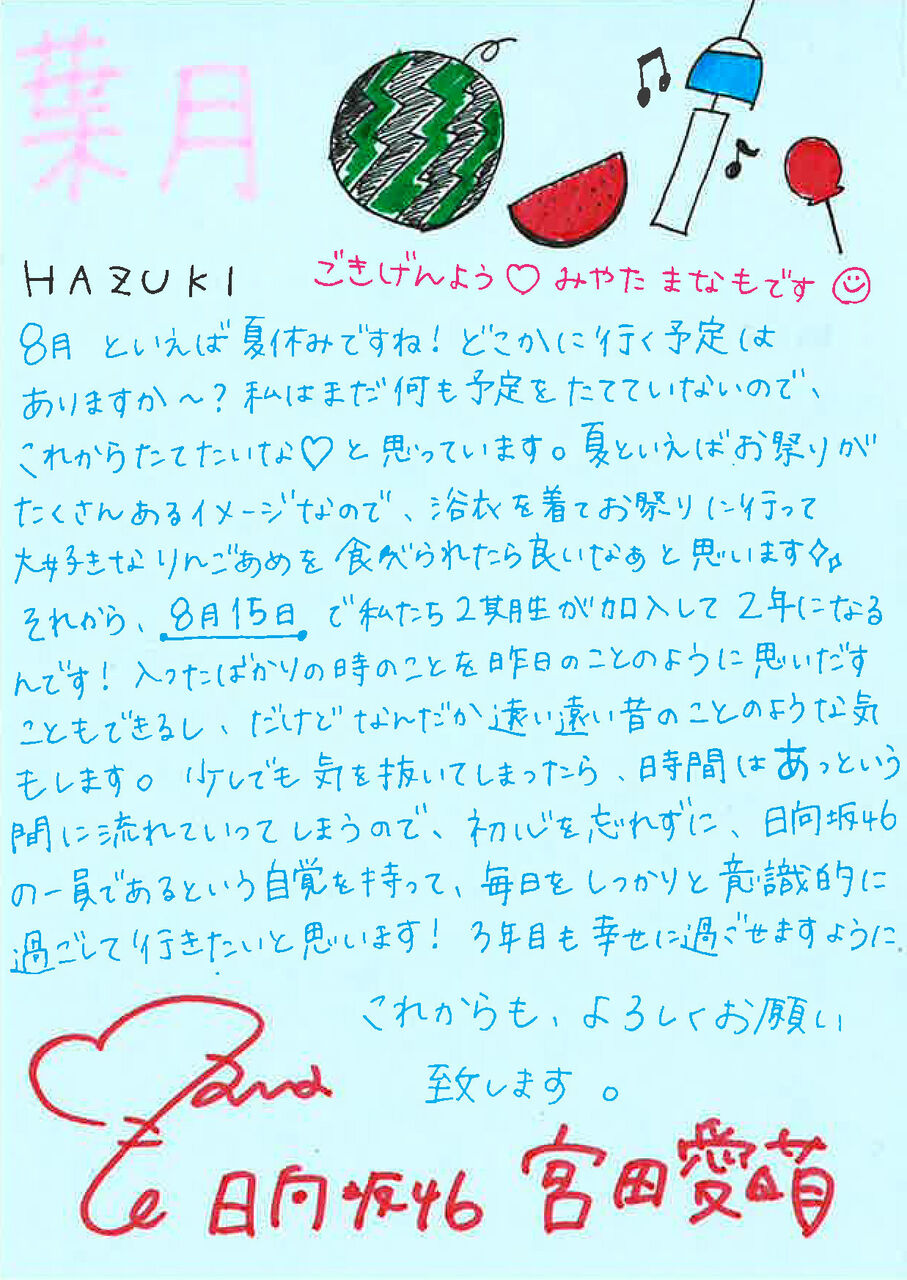 葉月
HAZUKI
ごきげんよう♡みやたまなもです☺
8月 といえば夏休みですね!どこかに行く予定は
ありますか〜?私はまだ何も予定をたてていないので、
これからたてたいな♡と思っています。夏といえばお祭りが
たくさんあるイメージなので、浴衣を着てお祭りに行って
大好きなりんごあめを食べられたら良いなぁと思います✧
それから、8月15日 で私たち2期生が加入して2年になる
んです!入ったばかりの時のことを昨日のことのように思いだす
こともできるし、だけどなんだか遠い遠い昔のことのような気
もします。少しでも気を抜いてしまったら、時間はあっという
間に流れていってしまうので、初心を忘れずに、日向坂46
の一員であるという自覚を持って、毎日をしっかりと意識的に
過ごして行きたいと思います!3年目も幸せに過ごせますように
これからも、よろしくお願い
致します。
Mana
も
日向坂46 宮田愛萌